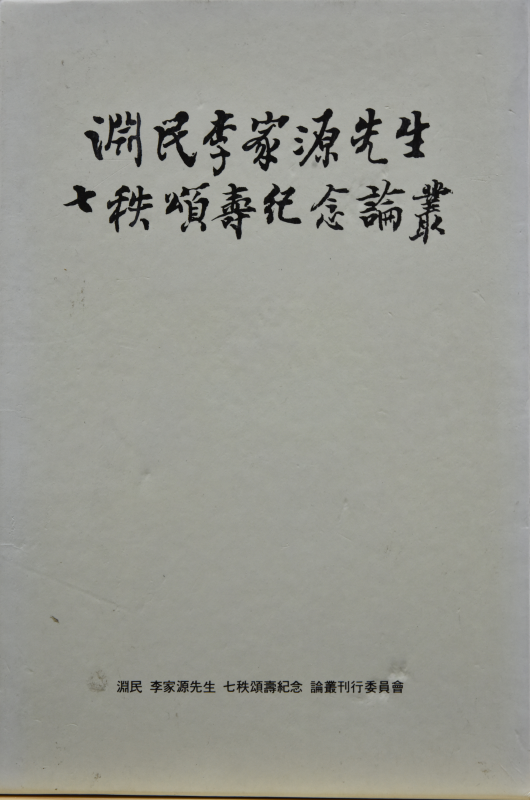 淵民李家源先生
七秩頌壽紀念論叢
淵民 李家源先生 七秩頌壽紀念 論叢刊行委員會